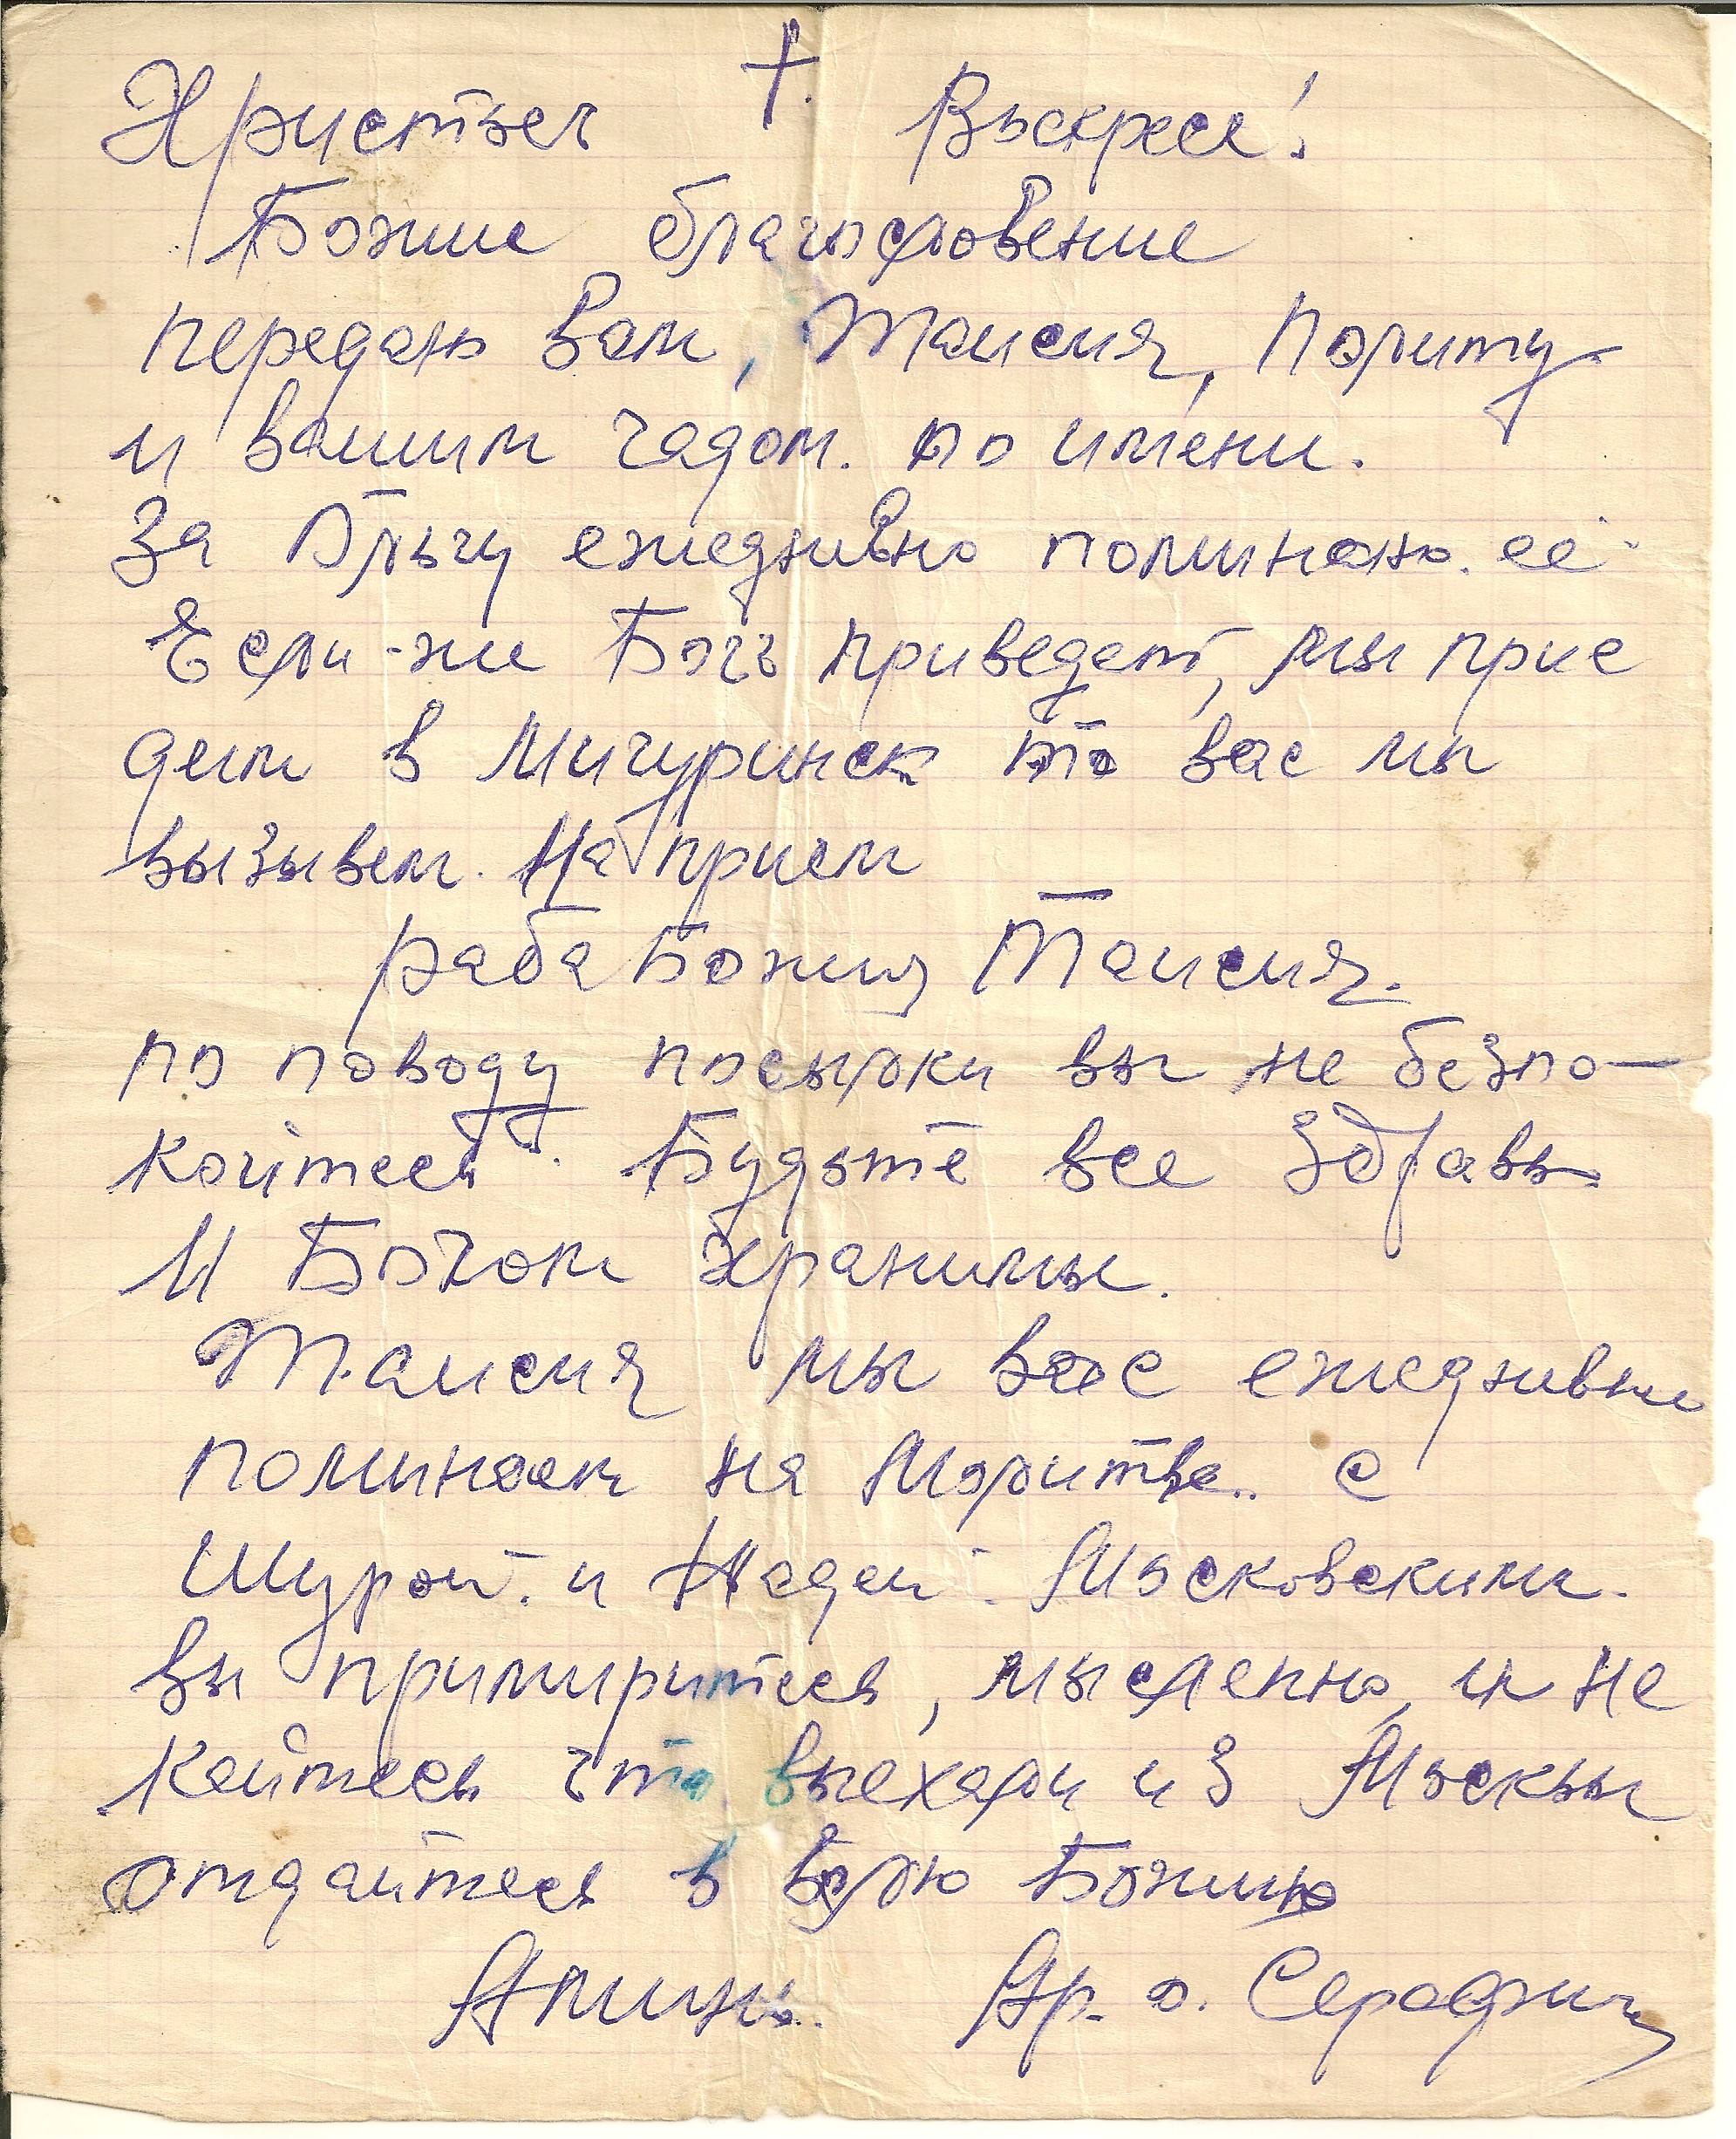 Христос †. Воскресе!
Божие благословение
передаю Вам, Таисия, Политу
и вашим чадом. по имени.
За Ольгу ежедневно поминаю. её
Если-же Богъ приведет, мы прие
дем в Мичуринск то вас мы
вызывем. На прием
раба Божия Таисия.
по поводу посылки вы не безпо-
койтесь. Будьте все Здравы
И Богом хранимы.
Таисия мы вас ежедневно
поминаем на Молитве.. с
Шурой. и Надей. Московскими.
вы примиритесь, мысленно, и не
кайтесь что выехали из Москвы
отдайтесь в волю Божию
Аминь. Ар. о. Серафим